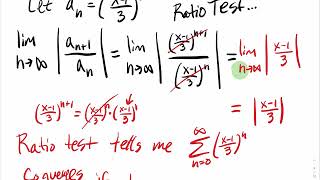 Let aₙ = (x-1/3)ⁿ Ratio Test...
lim n→∞ |aₙ₊₁/aₙ| = lim n→∞ |(x-1/3)ⁿ⁺¹/(x-1/3)ⁿ| = lim n→∞ |x-1/3|
(x-1/3)ⁿ⁺¹ = (x-1/3)ⁿ·(x-1/3)¹ = |x-1/3|
Ratio test tells me ∑ₙ₌₀^∞ (x-1/3)ⁿ
Converges if